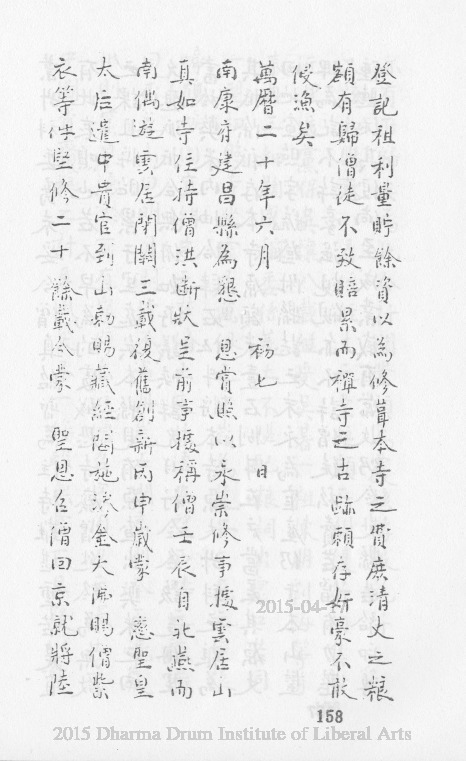 登記祖利量貯餘資以為修葺本寺之費庶清丈之糧
額有歸僧徒不致賠累而禪寺之古跡賴存奸豪不敢
侵漁矣
萬曆二十年六月 初七 日
南康府建昌縣為懇 恩賞照以永崇修事據雲居山
真如寺住持僧洪斷狀呈前事據稱僧壬辰自北燕而
南偶遊雲居閉關三載復舊創新丙申歲蒙 慈聖皇
太后遣中貴官到山勅賜藏經閣施金大佛賜僧紫
衣等件堅修二十 餘載今蒙 聖恩召僧回京就將陸
158
2015-04-17
2015 Dharma Drum Institute of Liberal Arts